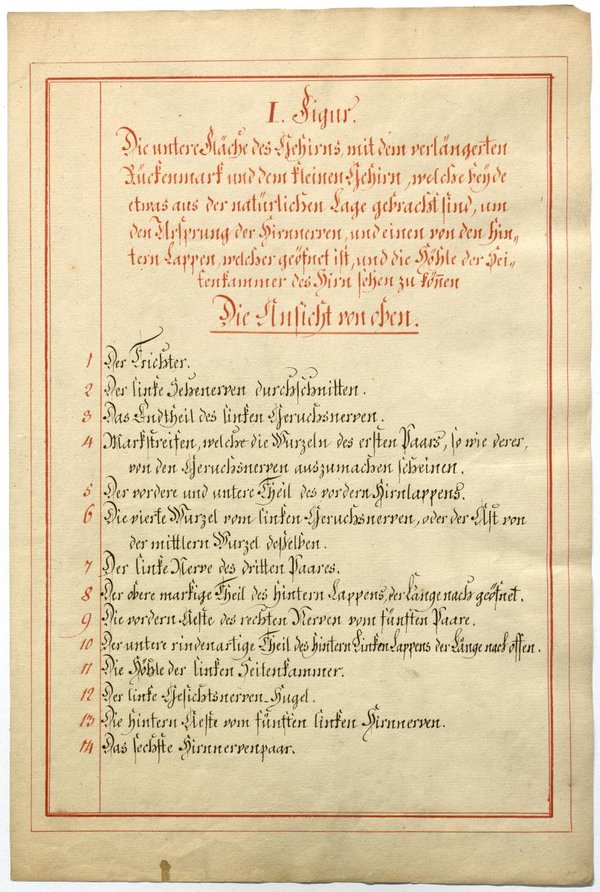 I. Figur.
Die untere Fläche des Gehirns, mit dem verlängerten
Rückenmark und dem kleinen Gehirn, welche beyde
etwas aus der natürlichen Lage gebracht sind, um
den Ursprung der Hirnnerven, und einen von den hin=
tern Lappen, welcher geöfnet ist, und die Höhle der Sei=
tenkammer des Hirn sehen zu können
Die Ansicht von oben.
1 Der Trichter.
2 Der linke Sehenerven durchschnitten.
3 Das Endtheil des linken Geruchsnerven.
4 Markstreifen, welche die Wurzeln des ersten Paars, so wie derer,
von den Geruchsnerven auszumachen scheinen.
5 Der vordere und untere Theil des vordern Hirnlappens.
6 Die vierte Wurzel vom linken Geruchsnerven, oder der Ast von
der mittlern Wurzel deßelben.
7 Der linke Nerve des dritten Paares.
8 Der obere markige Theil des hintern Lappens, der Länge nach geöfnet.
9 Die vordern Aeste des rechten Nerven vom fünften Paare.
10 Der untere rindenartige Theil des hintern Linken Lappens der Länge nach offen.
11 Die Höhle der linken Seitenkammer.
12 Der linke Gesichtsnerven-Hugel.
13 Die hintern Aeste vom fünften linken Hirnnerven.
14 Das sechste Hirnnervenpaar.